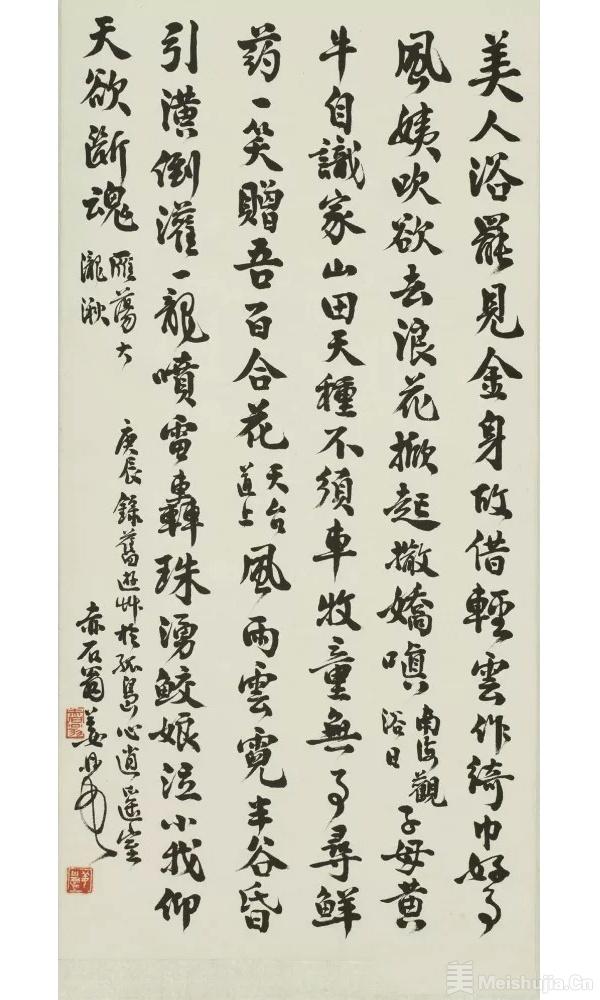 美人浴罷見金身故借輕雲作綺巾好事
風姨吹欲去浪花掀起撒嬌嗔南海觀
浴日子母黃
牛自識家山田天種不須車牧童無事尋鮮
药一笑贈吾百合花天台
道上風雨雲霓半谷昏
引潢倒灌一龍噴雷轟珠湧鮫娘泣小我仰
天欲斷魂雁蕩大
瀧湫
庚辰錄舊遊艸於孤島心逍遥室
赤石翁姜丹書
美 Meishujia.Cn